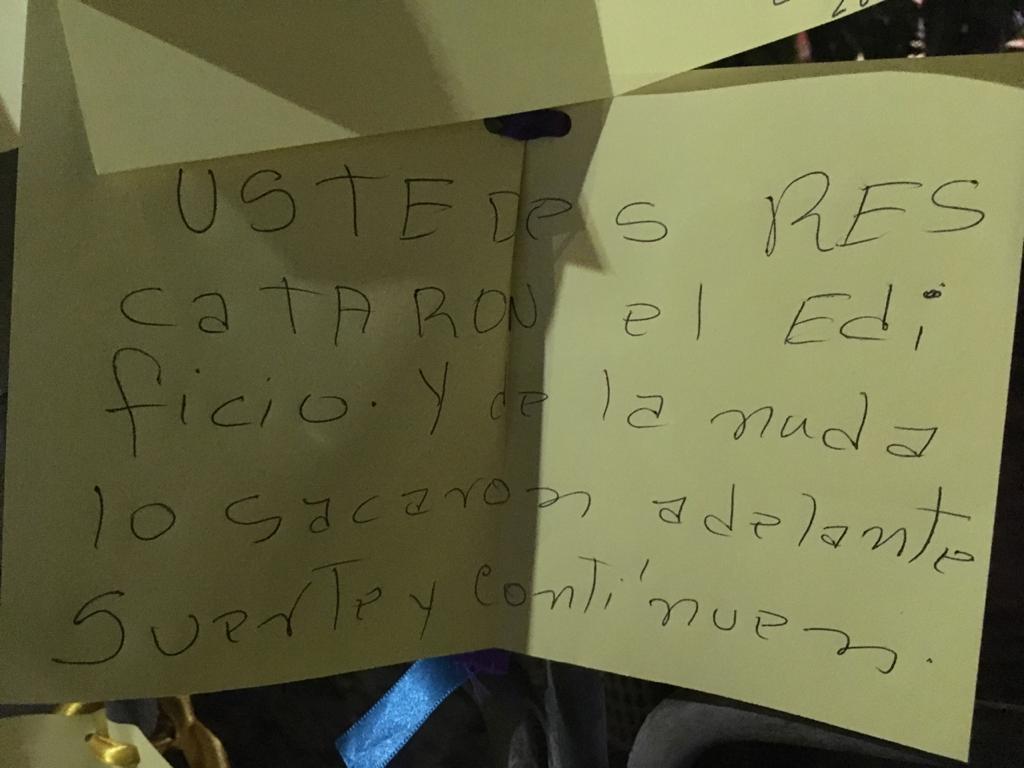 USTEDeS RES
CaTARON el Edi
ficio. y de la nada
lo sacaron adelante
Suerte y contínuen.